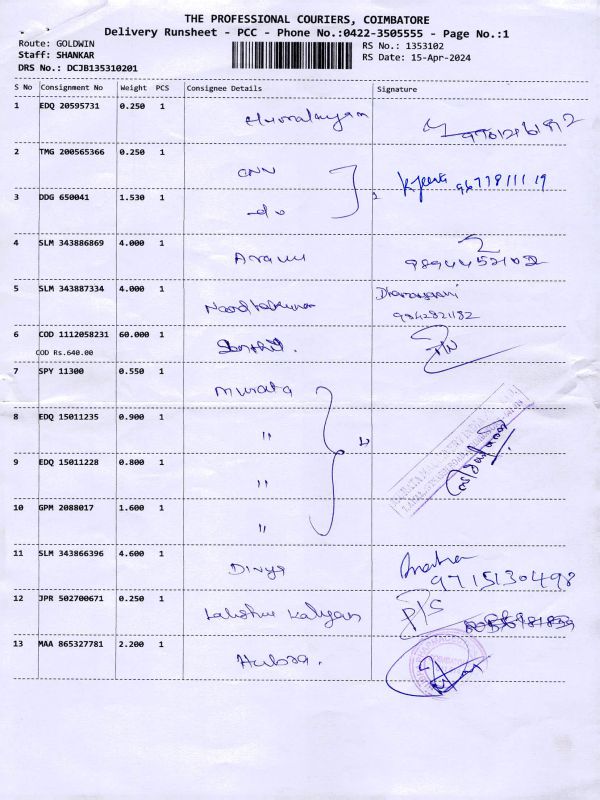 THE PROFESSIONAL COURIERS, COIMBATORE
Delivery Runsheet - PCC - Phone No.:0422-3505555 - Page No.:1
Route: GOLDWIN
Staff: SHANKAR
DRS No.: DCJB135310201
RS No.: 1353102
RS Date: 15-Apr-2024
S No Consignment No Weight PCS Consignee Details Signature
1 EDQ 20595731 0.250 1
2 TMG 200565366 0.250 1 CNN
3 DDG 650041 1.530 1 do
4 SLM 343886869 4.000 1
9894452102
5 SLM 343887334 4.000 1
9842821182
6 COD 1112058231 60.000 1
COD Rs.640.00
7 SPY 11300 0.550 1 Murata
8 EDQ 15011235 0.900 1 "
9 EDQ 15011228 0.800 1 "
10 GPM 2088017 1.600 1 "
11 SLM 343866396 4.600 1 Divya
9715130498
12 JPR 502700671 0.250 1 Lakshmi Kalyan P/S
13 MAA 865327781 2.200 1